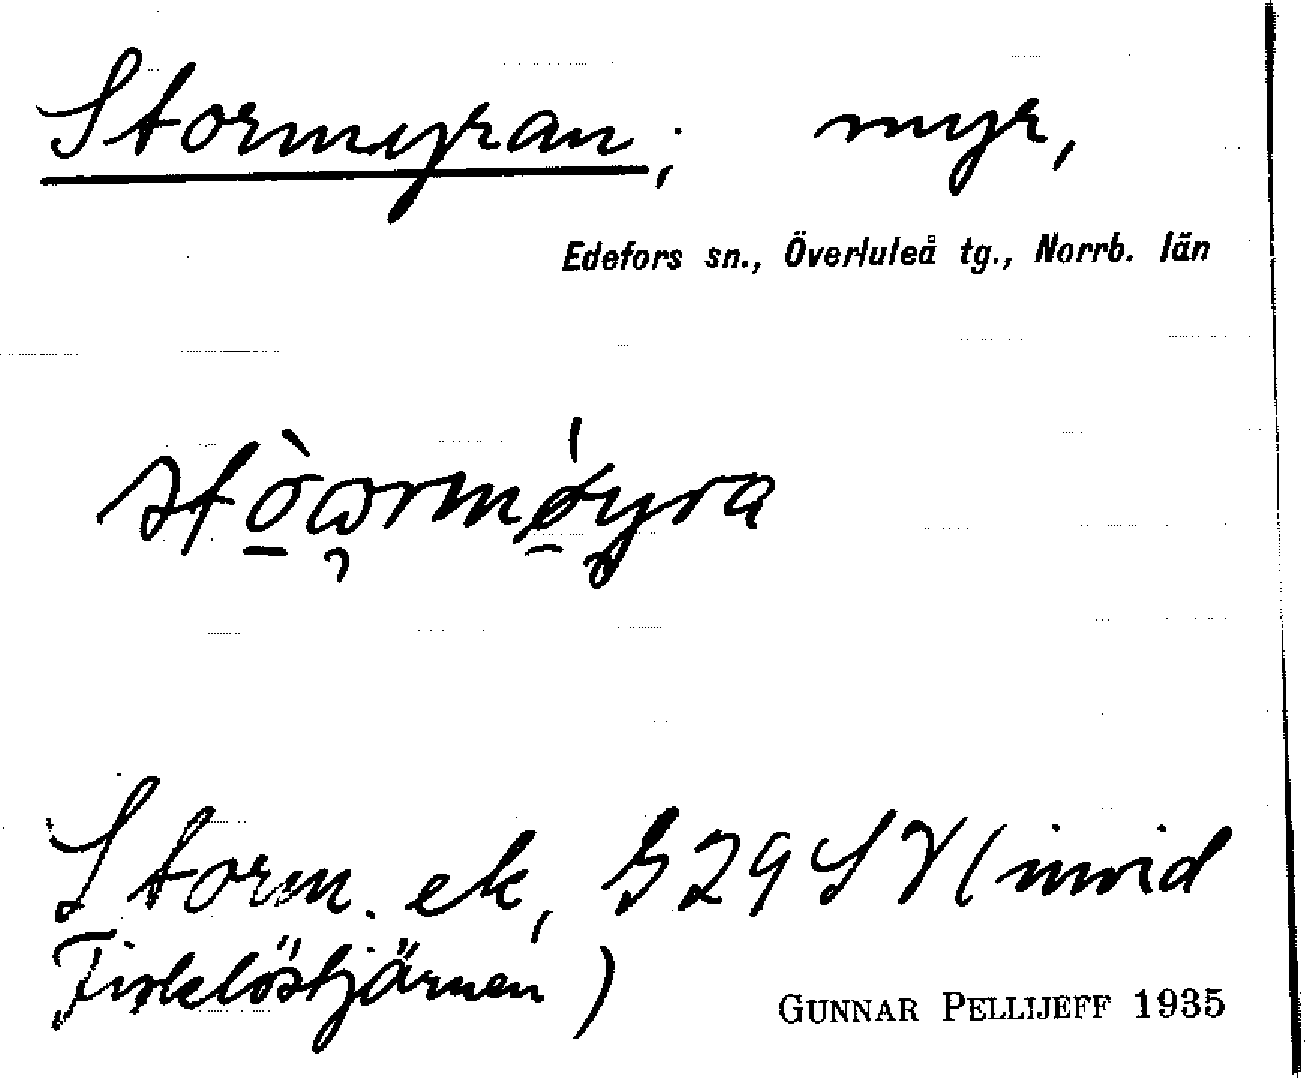 Stormyran; myr,
Edefors sn., Överluleå tg., Norrb. län
Storm. ek, b 29 SV (invid
Fisklöstjärnen)
GUNNAR PELLIJEFF 1935